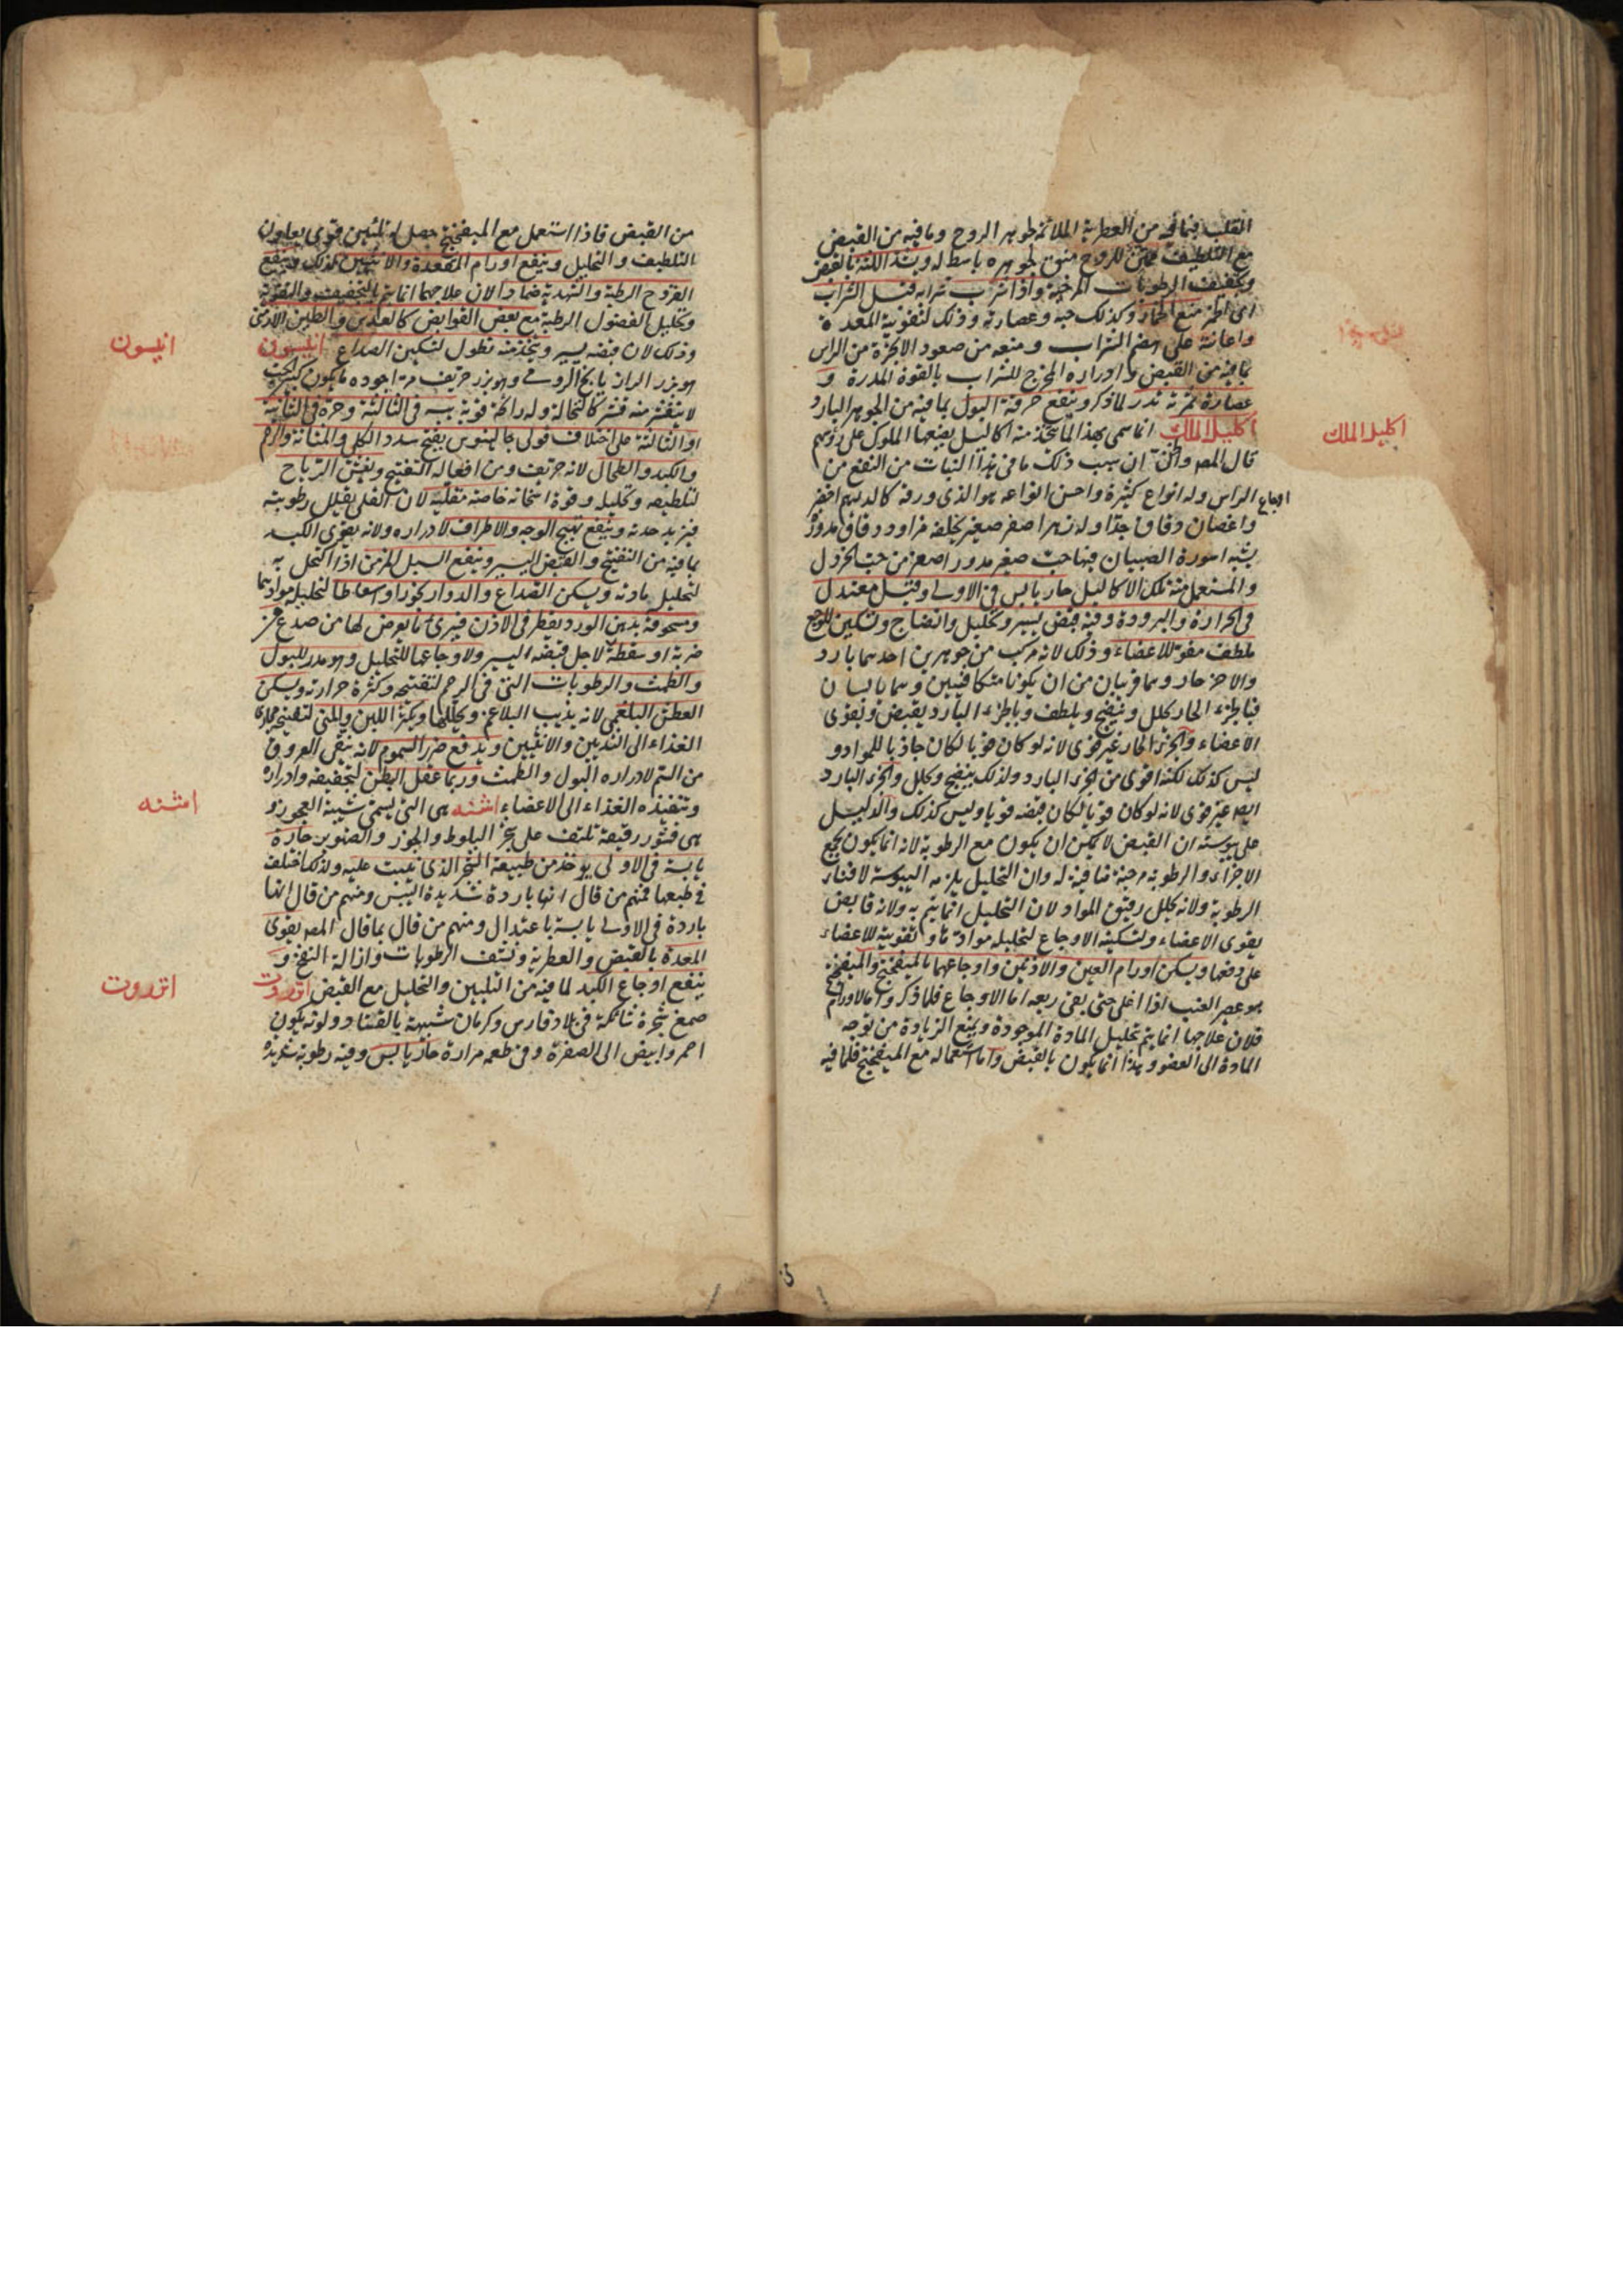 القلب فبما فيه من العطرية الملائمة لجوهر الروح وما فيه من القبض
مع التلطيف ممتن للروح منق لجوهره باسط له ويشد اللثة بالقبض
وتجفيف الرطوبات المرخية واذا شرب شرابه قبل الشراب
اى الخمر منع الخمار وكذلك حبه وعصارته وذلك لتقوية المعدة
واعانته على هضم الشراب ومنعه من صعود الابخرة من الراس
بما فيه من القبض وادراره المخرج للشراب بالقوة المدرة و
عصارة ثمرته تدر لما ذكر وينفع حرقة البول بما فيه من الجوهر البارد
اكليل الملك
اكليل الملك انما سمى بهذا لما يتخذ منه اكاليل يضعها الملوك على رؤسهم
قال المص واظن ان سبب ذلك ما فى هذا النبات من النفع من
اوجاع الراس وله انواع كثيرة واحسن انواعه هو الذى ورقه كالدرهم اخضر
واغصان دقاق جدا وله زهر اصفر صغير يخلفه مزاود دقاق مدورة
يشبه اسورة الصبيان فيها حب صغير مدور اصغر من حب الخردل
والمستعمل منه تلك الاكاليل حار يابس فى الاولى وقيل معتدل
فى الحرارة والبرودة وفيه قبض يسير وتحليل وانضاج وتسكين للوجع
ملطف مقو للاعضاء وذلك لانه مركب من جوهرين احدهما بارد
والاخر حار وهما قريبان من ان يكونا متكافيين وهما يابسان
فبالجزء الحار يحلل وينضج ويلطف وبالجزء البارد يقبض ويقوى
الاعضاء والجزء الحار غير قوى لانه لو كان قويا لكان جاذبا للمواد و
ليس كذلك لكنه اقوى من الجزء البارد ولذلك ينضج ويحلل والجزء البارد
ايضا غير قوى لانه لو كان قويا لكان قبضه قويا وليس كذلك والدليل
على يبوسته ان القبض لا يمكن ان يكون مع الرطوبة لانه انما يكون بجمع
الاجزاء والرطوبة مرخية منافية له وان التحليل يلزمه اليبوسة لافناء
الرطوبة ولانه يحلل رقيق المواد لان التحليل انما يتم به ولانه قابض
يقوى الاعضاء وتسكينه الاوجاع لتحليله موادها وتقويته للاعضاء
على دفعها ويسكن اورام العين والاذنين واوجاعهما بالميفختج والميفختج
هو عصير العنب اذا اغلى حتى بقى ربعه اما الاوجاع فلما ذكر واما الاورام
فلان علاجها انما يتم بتحليل المادة الموجودة وبمنع الزيادة من توجه
المادة الى العضو وهذا انما يكون بالقبض واما استعماله مع الميفختج فلما فيه
من القبض فاذا استعمل مع الميفختج حصل له تليين قوى يعاون
التلطيف والتحليل وينفع اورام المقعدة والانثيين لذلك وينفع
القروح الرطبة والشهدية ضمادا لان علاجها انما يتم بالتجفيف والتقوية
وتحليل الفضول الرطبة مع بعض القوابض كالعدس والطين الارمنى
وذلك لان قبضه يسير ويتخذ منه نطول لتسكين الصداع انيسون
انيسون
هو بزر الرازيانج الرومى وهو بزر حريف مر اجوده ما يكون كبير الحب
لا يتقشر منه قشر كالنخالة وله رائحة قوية يبسه فى الثالثة وحره فى الثانية
او الثالثة على اختلاف قولى جالينوس يفتح سدد الكلى والمثانة والرحم
والكبد والطحال لانه حريف ومن افعاله التفتيح ويفش الرياح
لتلطيفه وتحليله وقوة اسخانه خاصة مقليه لان القلى يقلل رطوبته
فيزيد حدته وينفع تهيج الوجه والاطراف لادراره ولانه يقوى الكبد
بما فيه من التفتيح والقبض اليسير وينفع السبل المزمن اذا اكتحل به
لتحليل مادته ويسكن الصداع والدوار بخورا واسعاطا لتحليله موادهما
ومسحوقه بدهن الورد يقطر فى الاذن فيبرئ ما يعرض لها من صدع عن
ضربة او سقطة لاجل قبضه اليسير ولاوجاعها للتحليل وهو مدر للبول
والطمث والرطوبات التى فى الرحم لتفتيحه وكثرة حرارته ويسكن
العطش البلغمى لانه يذيب البلاغم ويحللها ويكثر اللبن والمنى لتفتيح مجارى
الغذاء الى الثديين والانثيين ويدفع ضرر السموم لانه ينقى العروق
من السم لادراره البول والطمث وربما عقل البطن لتجفيفه وادراره
وتنفيذه الغذاء الى الاعضاء اشنه هى التى يسمى شيبة العجوز و
اشنه
هى قشور رقيقة تلتف على شجر البلوط والجوز والصنوبر حارة
يابسة فى الاولى يوخذ من طبيعة الشجر الذى ينبت عليه ولذلك اختلف
فى طبعها فمنهم من قال انها باردة شديدة اليبس ومنهم من قال انها
باردة فى الاولى يابسة باعتدال ومنهم من قال بما قال المص يقوى
المعدة بالقبض والعطرية ونشف الرطوبات وازالة النفخ و
ينفع اوجاع الكبد لما فيه من التليين والتحليل مع القبض انزروت
انزروت
صمغ شجرة شائكة فى بلاد فارس وكرمان شبيهة بالقتاد ولونه يكون
احمر وابيض الى الصفرة وفى طعمه مرارة حار يابس وفيه رطوبة شديدة